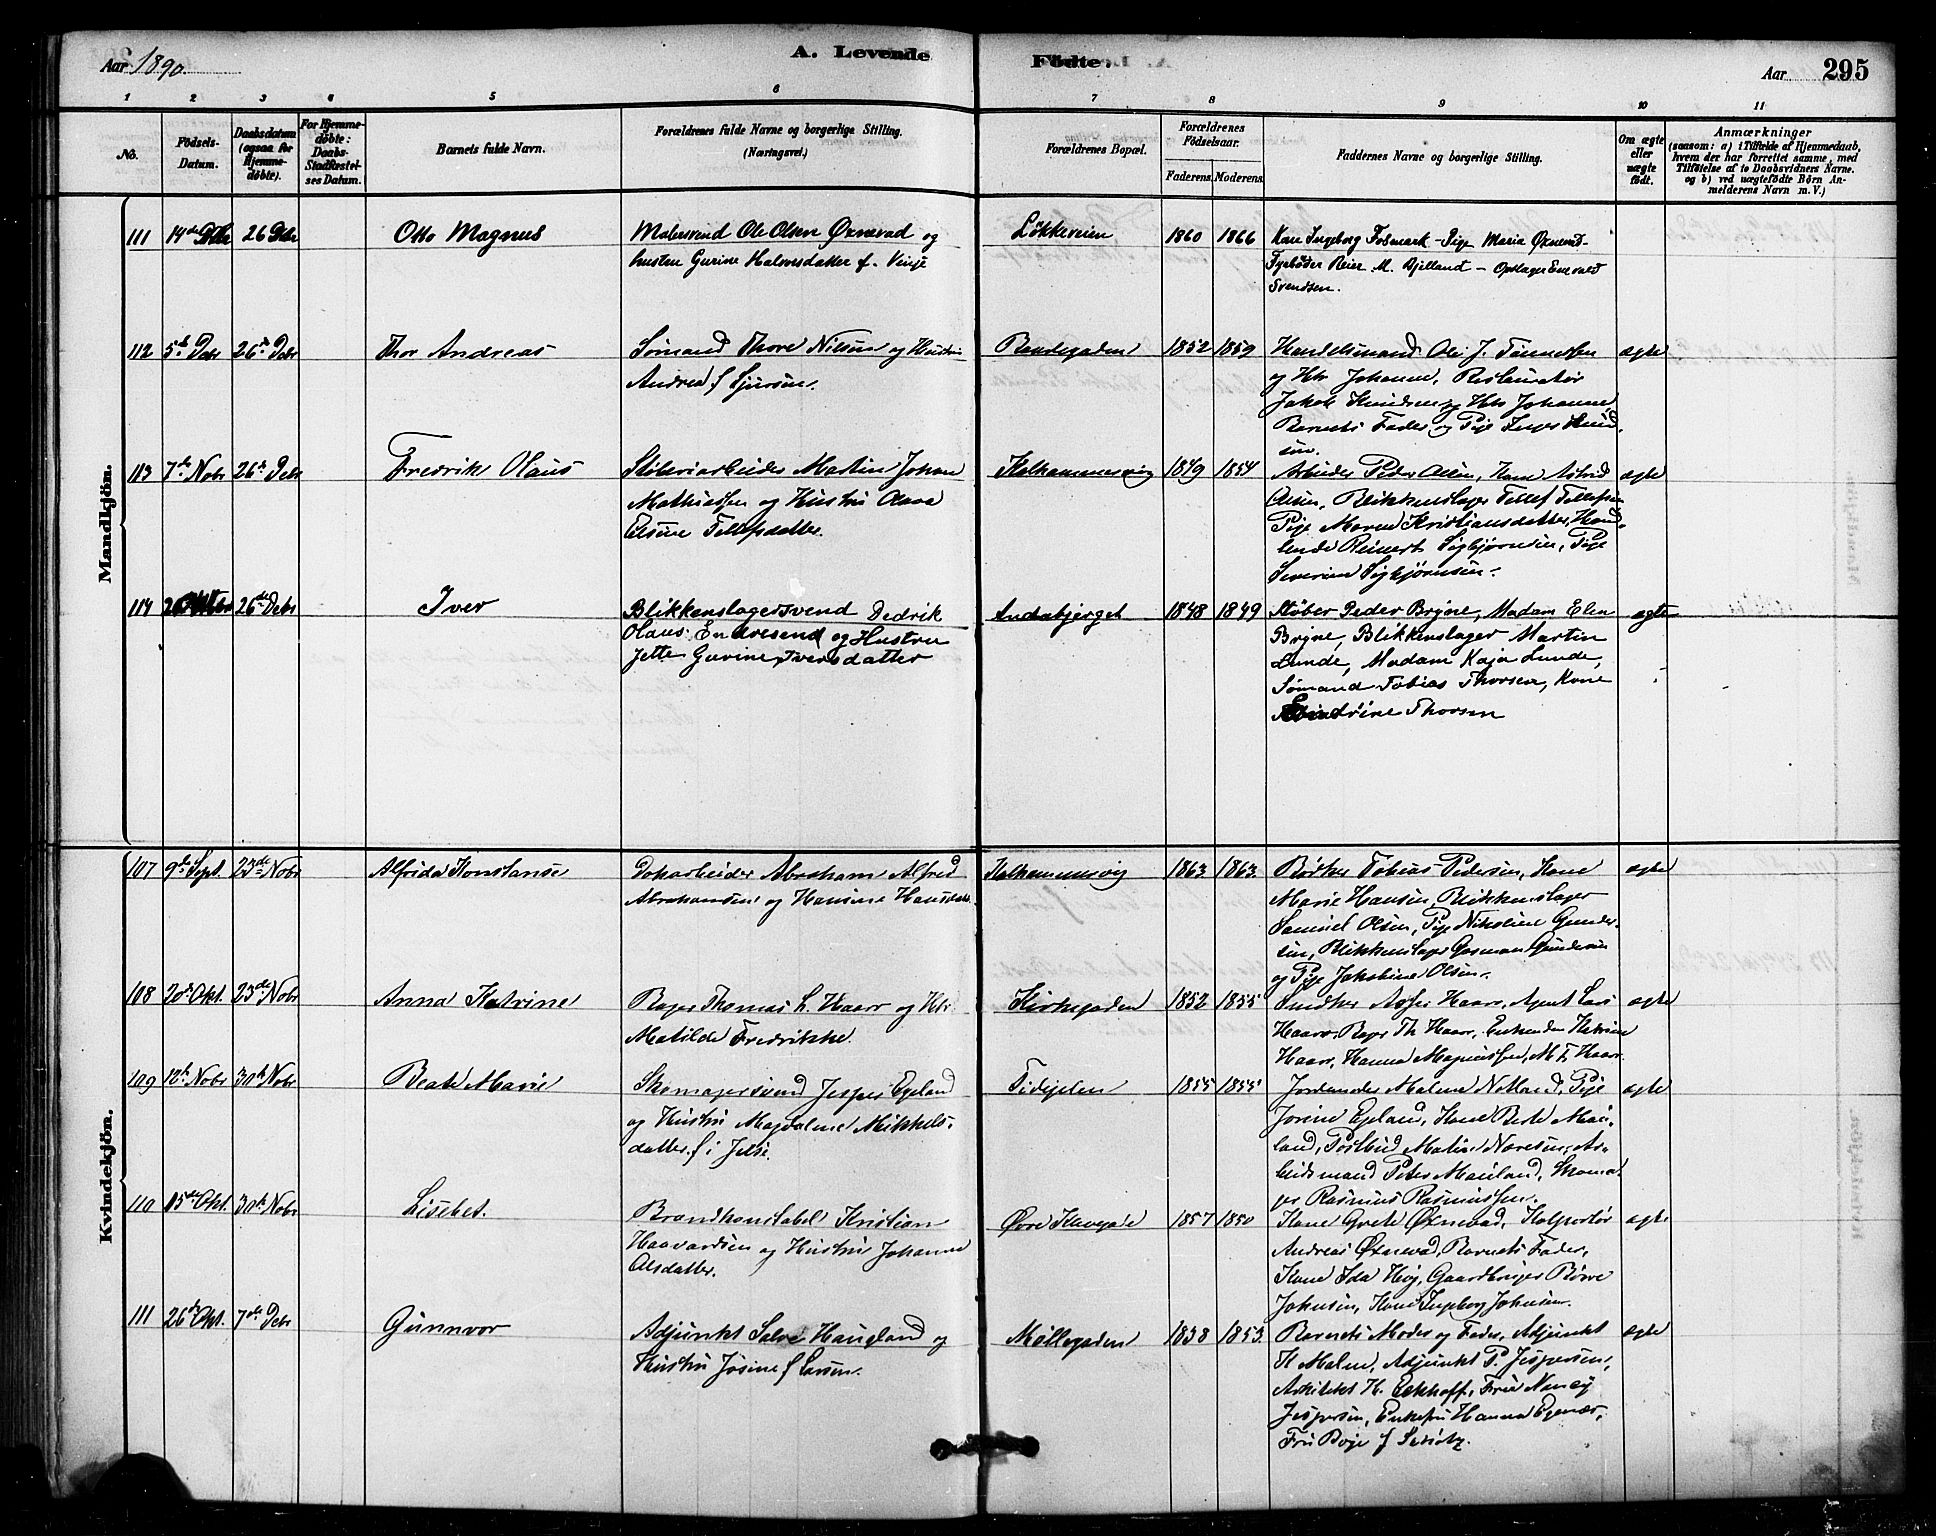 Aar 1890.
A. Levende
Fødte.
Aar
295
1 2 3 4 5 6 7 8 9 10 11
No.
Fødsels-Datum.
Daabsdatum (ogsaa for Hjemmedøbte).
For Hjemmedøbte: Daabs-Stadfæstelses Datum.
Barnets fulde Navn.
Forældrenes fulde Navne og borgerlige Stilling. (Næringsvei.)
Forældrenes Bopæl.
Forældrenes Fødselsaar.
Faderens. Moderens.
Faddernes Navne og borgerlige Stilling.
Om ægte eller uægte født.
Anmærkninger
(saasom: a) i Tilfælde af Hjemmedaab, hvem der har forrettet samme, med Tilføielse af to Daabsvidners Navne. og b) ved uægtefødte Børn Anmelderens Navn m. V.)
Mandkjön.
111 14de 26 Otto Magnus
Malersvend Ole Olsen Øxnevad og
hustru Gurine Halvorsdatter f. Vinje
Løkkeveien 1860 1866
Kone Ingeborg Fosmark - Pige Maria Øxnevad -
Fyrbøder Reier M. Bjelland - Opslager Enevald
Svendsen.
112 5te Debr 26de Debr Thor Andreas
Sømand Thore Nilsen og Hustru
Andrea f Sjursen.
1852 1859
Handelsmand Ole J. Tønnessen
og Hstr Johanne, Restauratør
Jakob Knudsen og Hstr Johanne,
Barnets Fader og Pige Inger Knud
sen.
ægte
113 7de Nobr 26de Debr Fredrik Olaus
Støberiarbeider Martin Johan
Mathiassen og Hustru Olava
Elsine Tellefsdatter.
Kalhammersvig 1849 1854
Arbeider Peder Olsen, Kone Astrid
Olsen, Blikkenslager Tellef Tellefsen
Pige Maren Kristiansdatter, Hand
lende Reinert Sigbjørnsen, Pige
Severine Sigbjørnsen.
ægte
114 26de Debr Iver
Blikkenslagersvend Dedrik
Olaus Endresen og Hustru
Jette Gurine Iversdatter
Andabjerget 1848 1849
Støber Peder Bryne, Madam Elen
Bryne, Blikkenslager Martin
Lunde, Madam Kaja Lunde,
Sømand Tobias Thorsen, Kone
Thorsen
ægte
Kvindekjön.
107 9de Sept. 23de Nobr Alfrida Konstanse
Dokarbeider Abraham Alfred
Abrahamsen og Hansine Hansdatt.
Kalhammersvig 1863 1863
Bødker Tobias Pedersen, Kone
Marie Hansen, Blikkenslager
Samuel Olsen, Pige Nikoline Gunder-
sen, Blikkenslager Gosman Gundersen
og Pige Jakobine Olsen.
ægte
108 20de Okt. 23de Nobr Anna Katrine
Bager Thomas L. Haarr og Hstr.
Matilde Fredrikke.
Kirkegaden 1852 1855
Snedker Haarr, Agent Lars
Haarr, Bager Th Haarr, Enkemadam Katrine
Haarr, Hanna Magnussen, M. F. Haarr.
ægte
109 12te Nobr 30te Nobr Beate Marie
Skomagersvend Jesper Egeland
og Hustru Magdalene Mikkels-
datter f. i Jelse.
Tidejelen 1855 1855
Jordemoder Malene Notland, Pige
Jorine Egeland, Kone Berte Mau-
land, Postbud Martin Naresen, Ar-
beidsmand Peter Mauland, Skoma
ger Rasmus Rasmussen.
ægte
110 15de Okt. 30te Nobr Lisebet.
Brandkonstabel Kristian
Haavardsen og Hustru Johanne
Olsdatter.
Øvre Klevegade 1857 1850
Kone Grete Øxnevad, Kolportør
Andreas Øxnevad, Barnets Fader,
Kone Ida Høj, Gaardbruger Børre
Johnsen, Kone Ingeborg Johnsen.
ægte
111 26de Okt. 7de Debr Gunnvor
Adjunkt Salve Haugland og
Hustru Josine f Larsen.
Møllegaden 1838 1853
Barnets Moder og Fader, Adjunkt
K Malm, Adjunkt P. Jespersen,
Arkitekt H. Eckhoff, Frue Nancy
Jespersen, Enkefru Hanna Egenæs,
Fru Boje f Schiøtz.
ægte